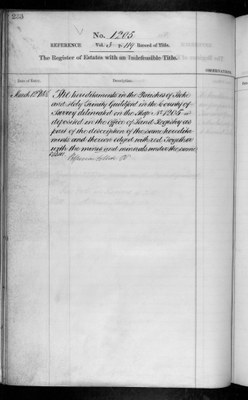 255
No. 1205
REFERENCE Vol. 3 p. 119 Record of Title.
The Register of Estates with an Indefeasible Title.
Date of Entry. Description. OBSERVATIONS.
March 12th The hereditaments in the Parishes of Stoke
and Holy Trinity Guildford in the County of
Surrey delineated on the Map No. 1205
deposited in the office of Land Registry as
part of the description of the same heredita-
ments and thereon edged with red Together
with the mines and minerals under the same